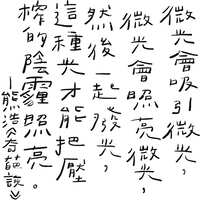 微光會吸引微光，
微光會照亮微光，
然後一起發光，
這種光才能把壓
榨的陰霾照亮。
—熊浩《奇葩說》